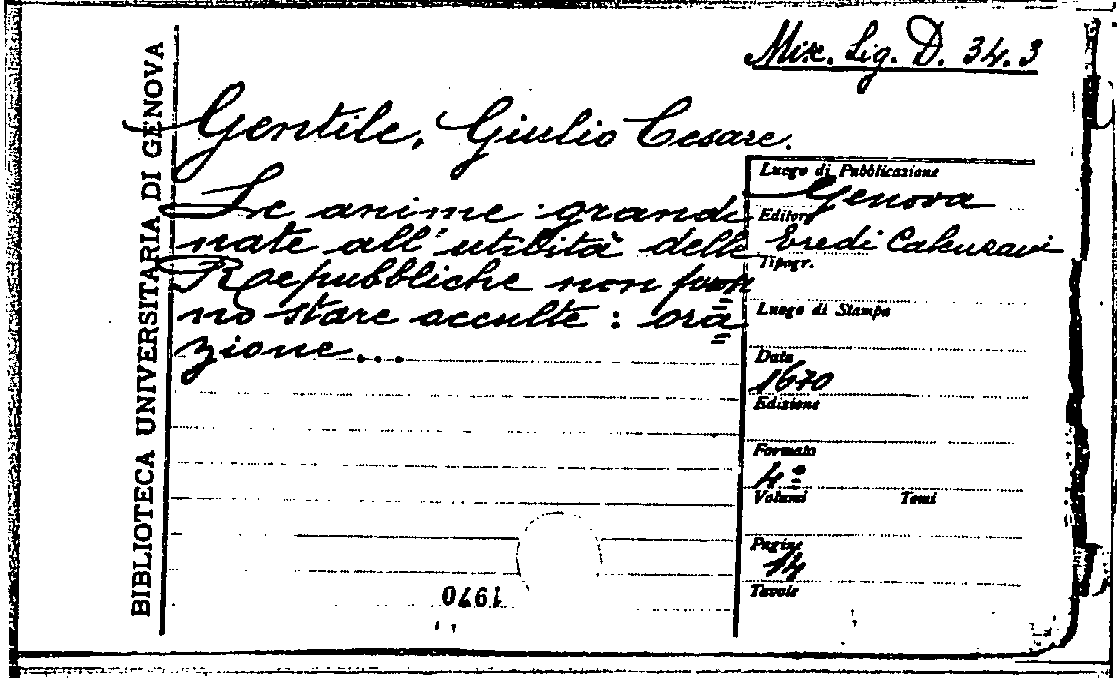 Misc. Lig. D. 34. 3
BIBLIOTECA UNIVERSITARIA DI GENOVA
Gentile, Giulio Cesare.
Le anime grandi
nate all'utilità delle
Repubbliche non pon
no stare occulte : ora
zione...
Luogo di Pubblicazione
Genova
Editore
Eredi Calenzani
Tipogr.
Luogo di Stampa
Data
1670
Edizione
Formato
4º
Volumi Tomi
Pagine
14
Tavole
1970